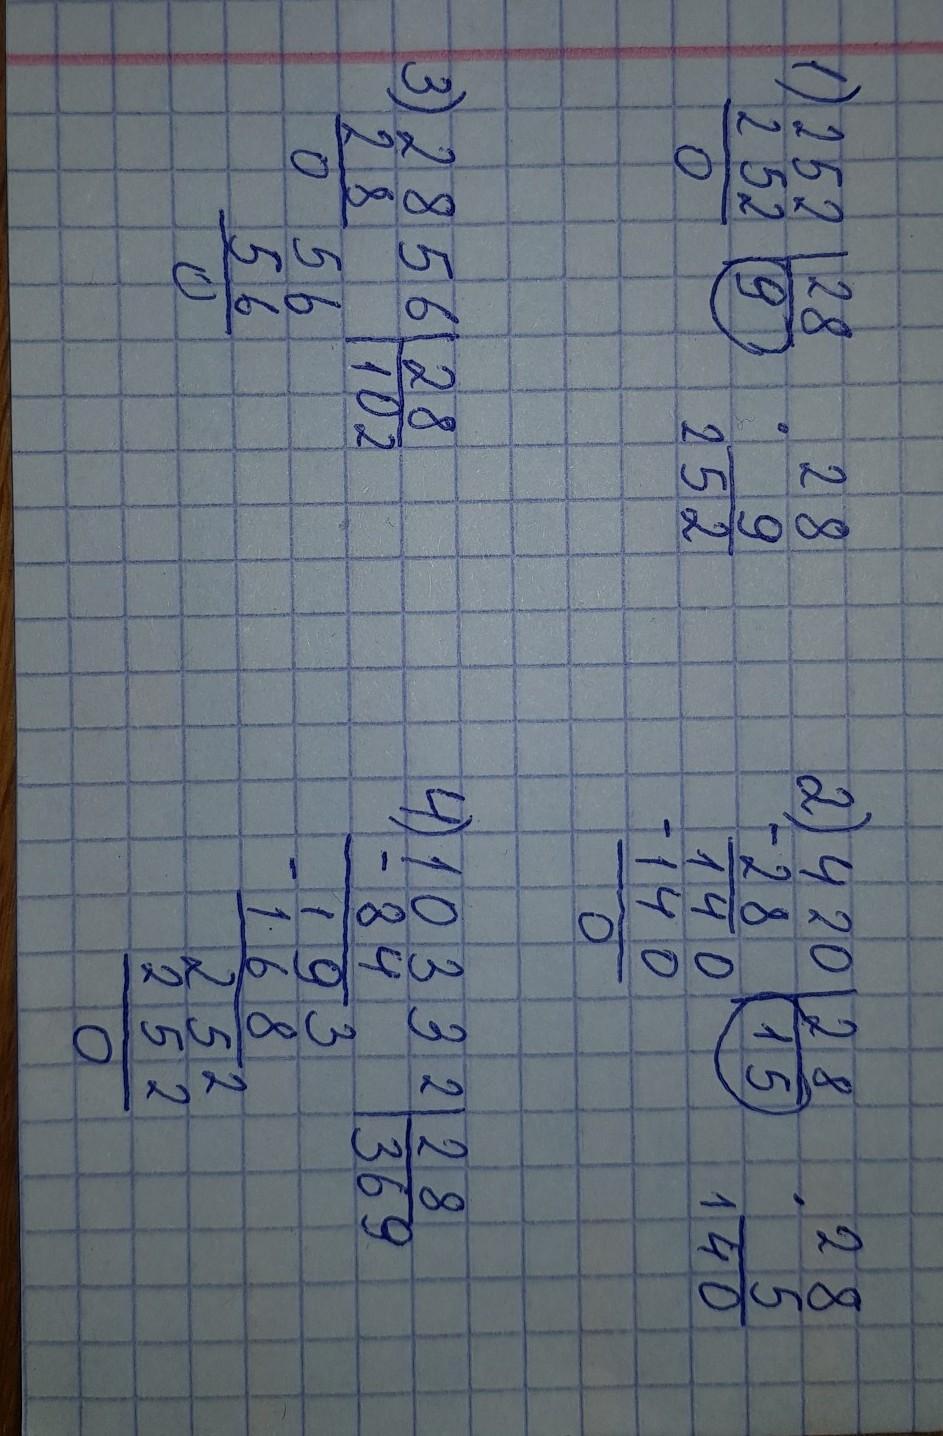 1) 252 28 · 28
252 9 9
0 252
2) 420 28 · 28
-28 15 5
140 140
-140
0
3) 2856 28
28 102
0 56
56
0
4) 10332 28
-84 369
-193
168
252
252
0